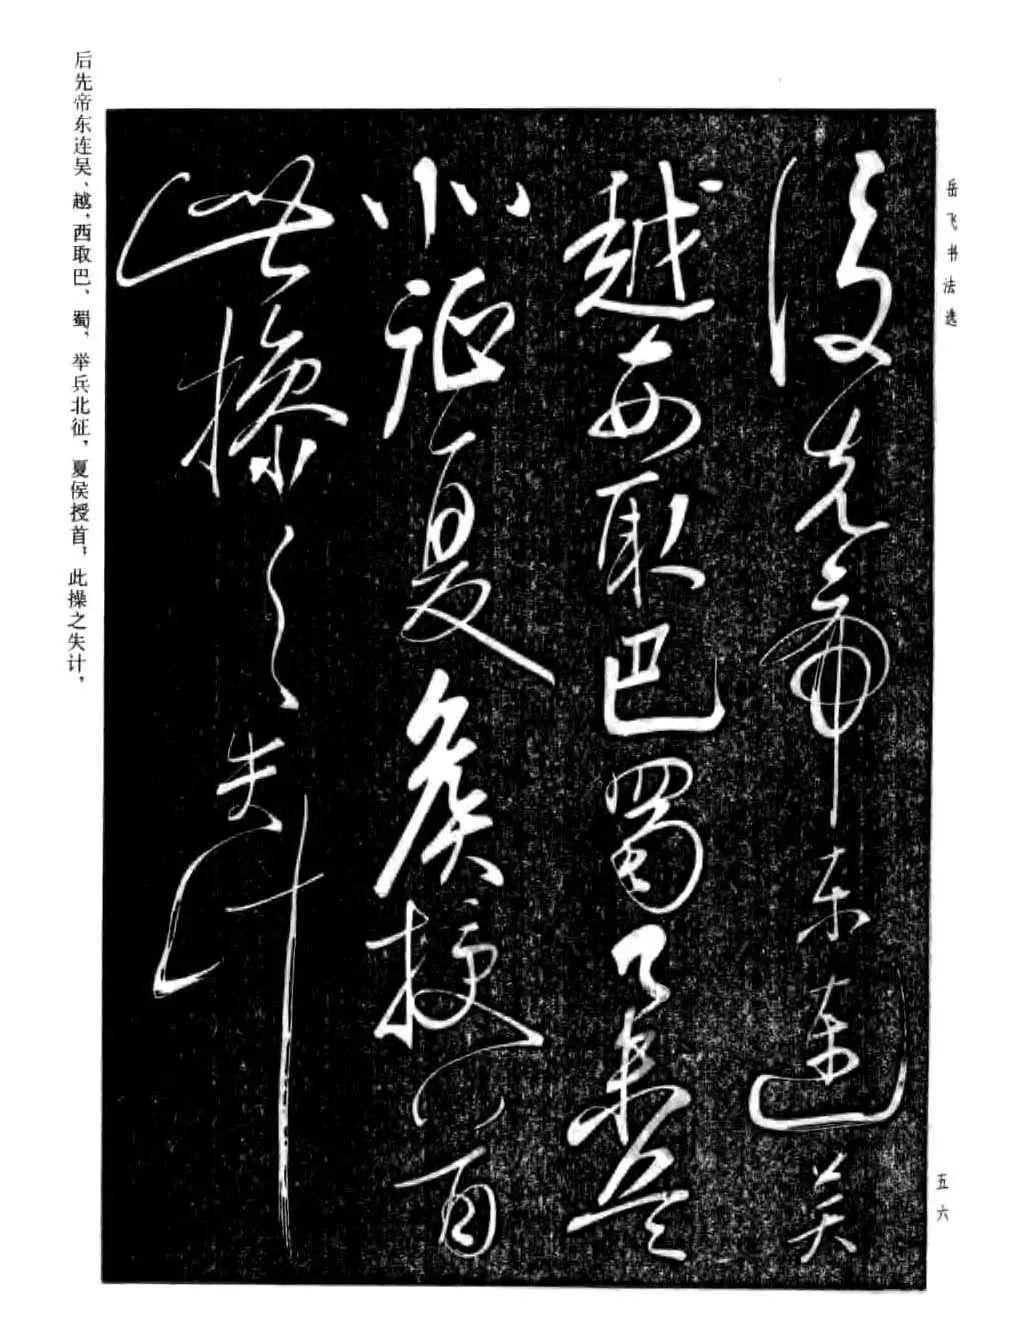 岳飞书法选
後先帝东连吴
越西取巴蜀举兵
北征夏侯授首
此操之失计
后先帝东连吴、越,西取巴、蜀,举兵北征,夏侯授首,此操之失计,
五六